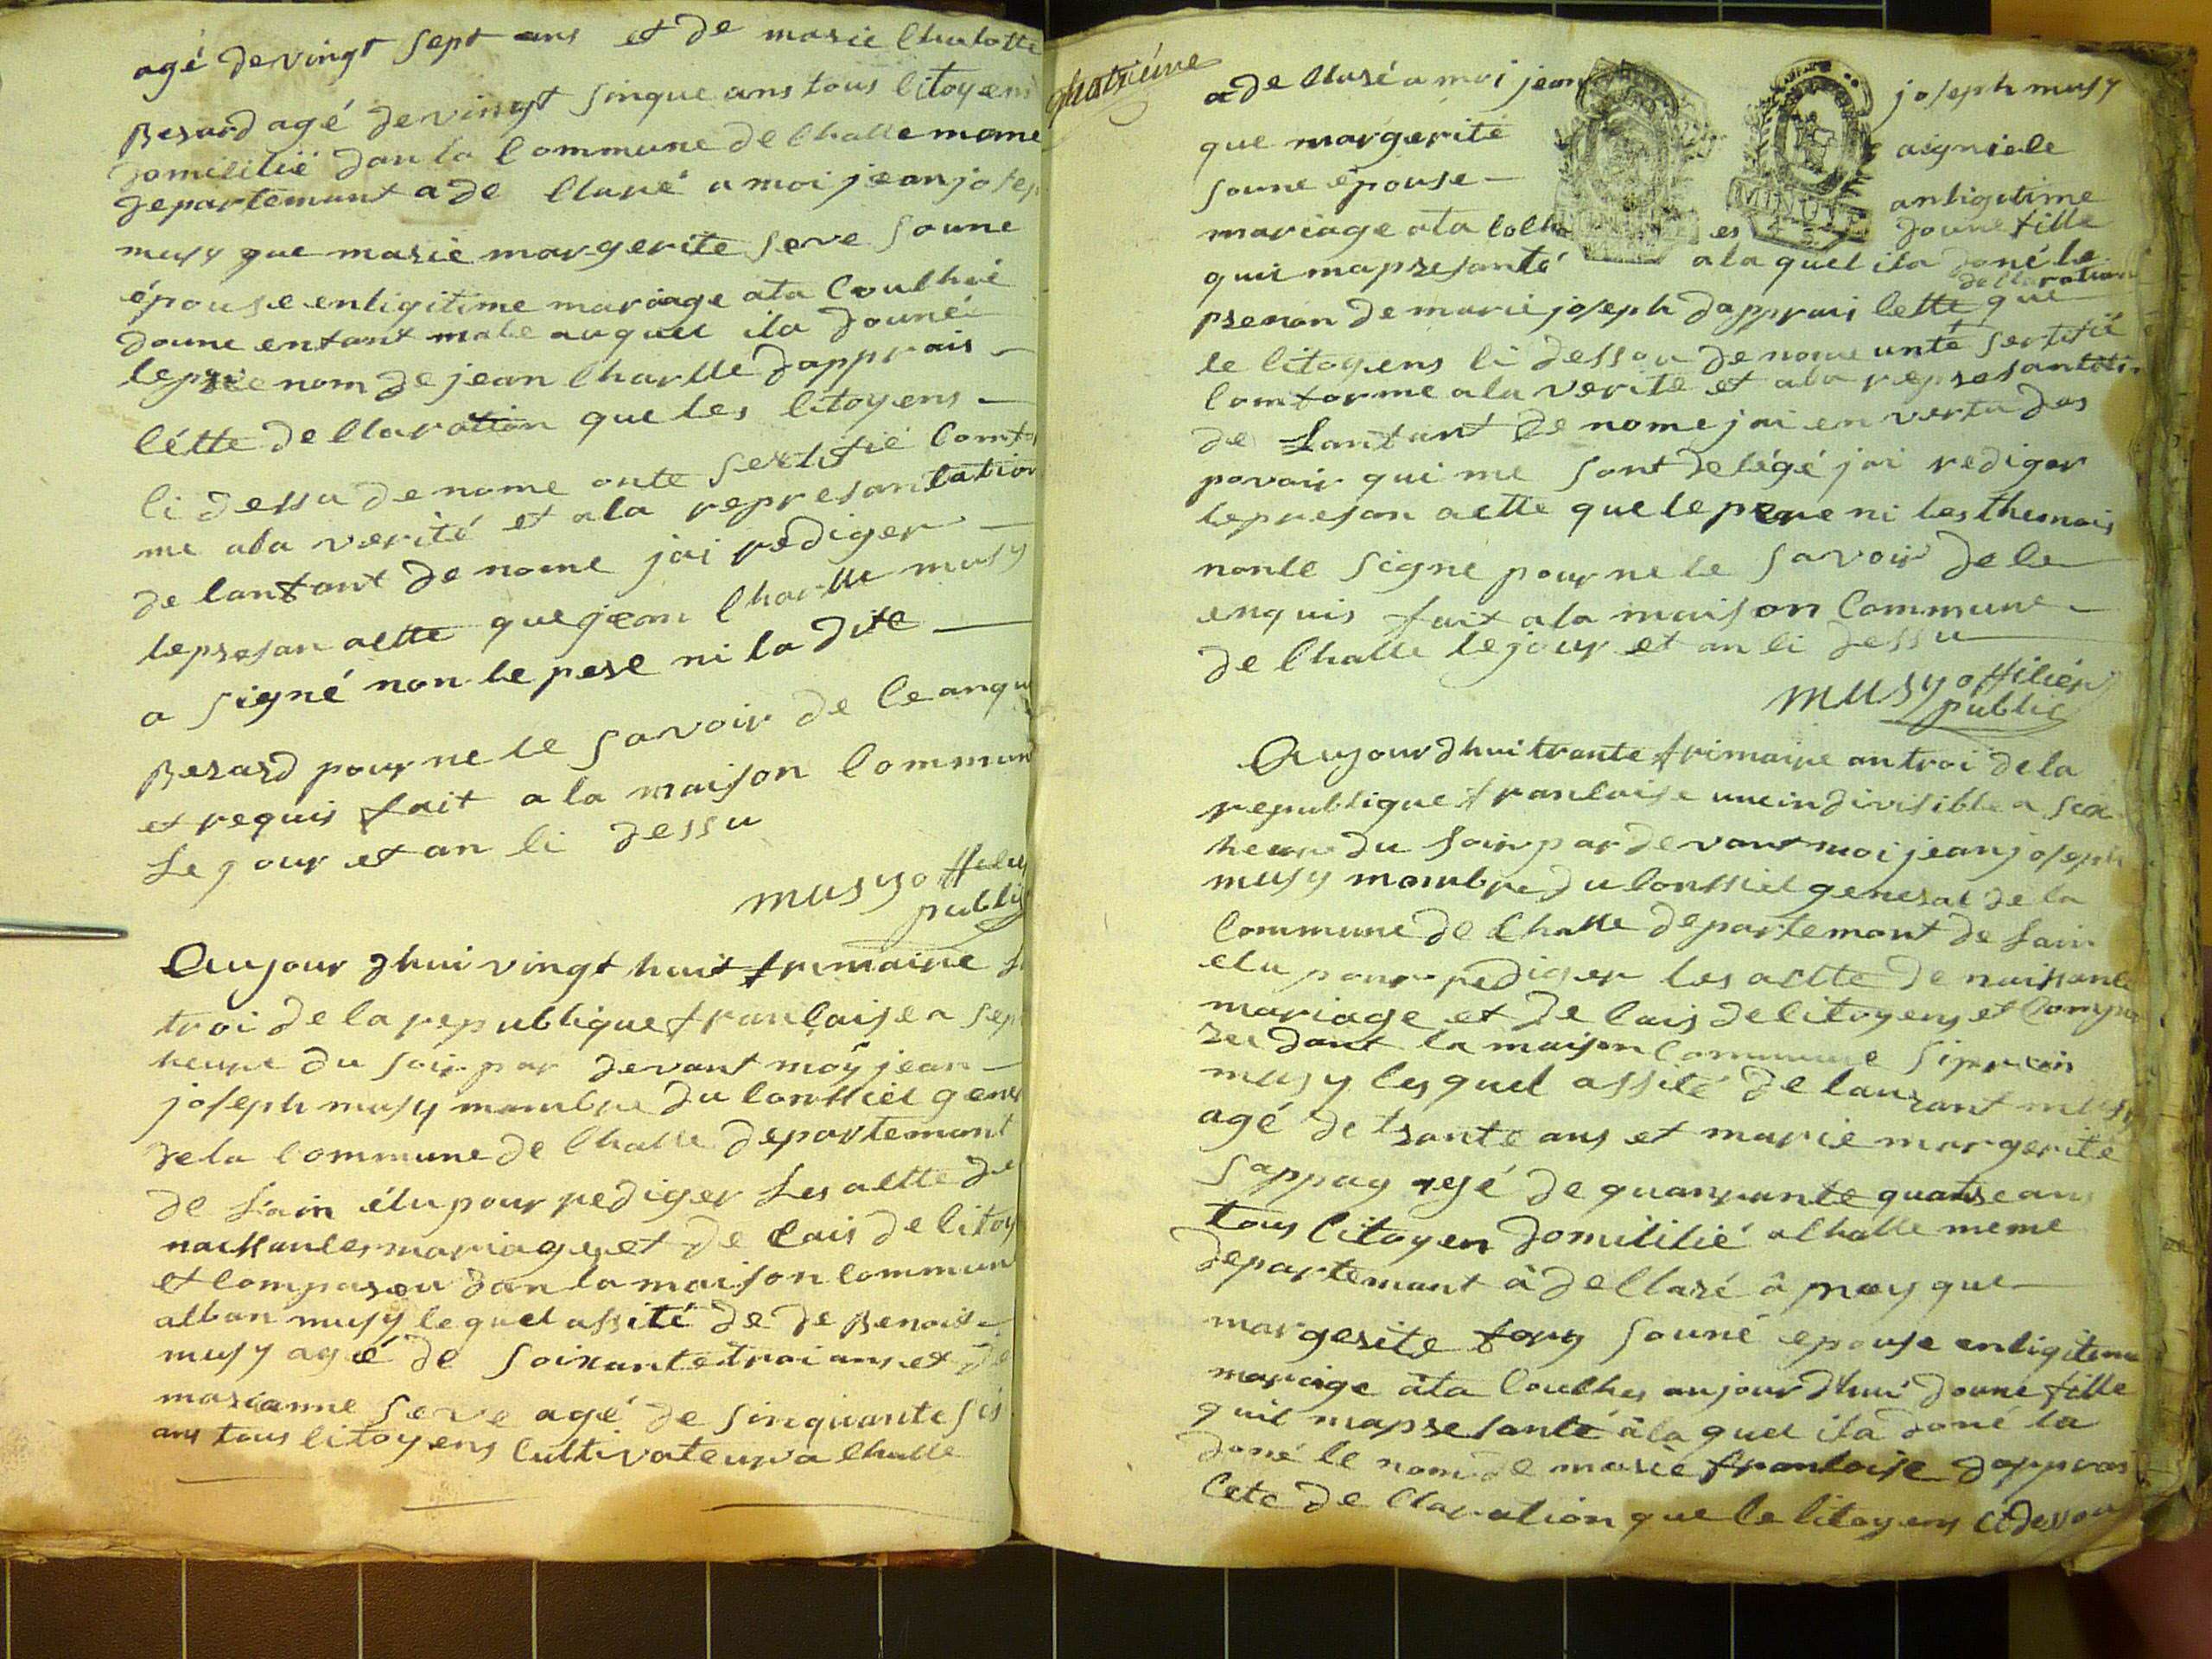 agé de vingt sept ans et de marie Charlotte
Besard agé de vingt sinque ans tous citoyens
domicilié dan la commune de challe mame
departemant a de claré a moi jean josep
musy que marie margerite seve soune
épouse en ligitime mariage ata couchée
doune enfant male auquel ila douné
le pre nom de jean charlle dapprais
cétte declaration que les citoyens
ci dessu denome onte sertifié comfor
me ala verité et ala represantation
de lanfant denome jai rediger
le presan actte que jean charlle musy
a signé non le pere ni la dite
Besard pour ne le savoir de ce anqu
et requis fait a la maison commun
Le jour et an ci dessu
musy officie
public
Aujour dhui vingt huit frimaire
troi de la republique francaise a sep
heure du soir par devant moÿ jean
joseph musy mambre du consiel gene
de la commune de challe departemant
de Lain élu pour rediger Les actte de
naissances mariages et de cais de citoy
et comparu dan la maison commun
alban musy lequel assité de de Benoit
musy agé de soixante troi ans et de
marianne seve agé de sinquante sis
ans tous citoyens cultivateur a challe
quatriéme
a de claré a moi jean joseph musy
que margerité aigniele
soune épouse anligitime
mariage ata coch es doune fille
qui ma presanté a la quel ila doné le
prenon de marie joseph dapprais cette declaration que
le citoyens ci dessou denome unte sertifié
comforme ala verité et ala represantati
de Lanfant de nome jai en vertu des
povoir qui me sont delégé jai rediger
le presan actte que le pere ni les themois
nonte signe pour ne le savoir de ce
enquis fait a la maison commune
de challe le jour et an ci dessu
musy officiér
public
Aujourdhui trante frimaire an troi de la
republique francaise une indivisible a six
heure du soir par devant moi jean joseph
musy mambre du consiel general de la
commune de challe departemant de Lain
elu pour rediger les actte de naissance
mariage et de cais de citoyens et compa
ru dant la maison commune sipprien
musy lesquel assité de laurant musy
agé de trante ans et marie margerité
sappay agé de quarante quatre ans
tous citoyen domicilié a challe meme
departemant â declaré â moy que
margerite fory souné epouse en ligitime
mariage âta couchés aujourdhui doune fille
quil mapresante â la quel ila doné la
doné le nom de marie francoise dapprais
cete de claration que le citoyens ci dessou